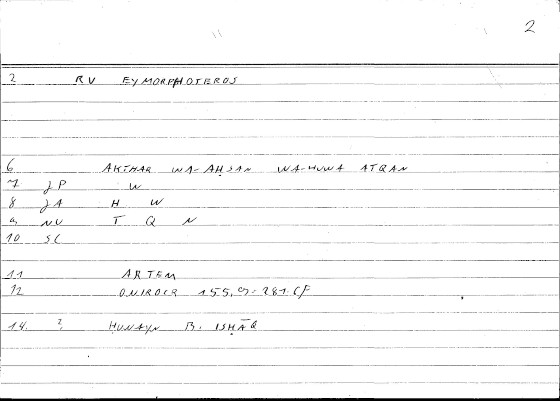 2
2 RV EYMORPHOTEROS
6 AKTHAR WA-AḤSAN WA-HUWA ATQAN
7 JP W
8 JA H W
9 NV T Q N
10 SC
11 ARTEM
12 ONIROCR 155,9-281.CF
14. ? ḤUNAYN B. ISḤĀQ